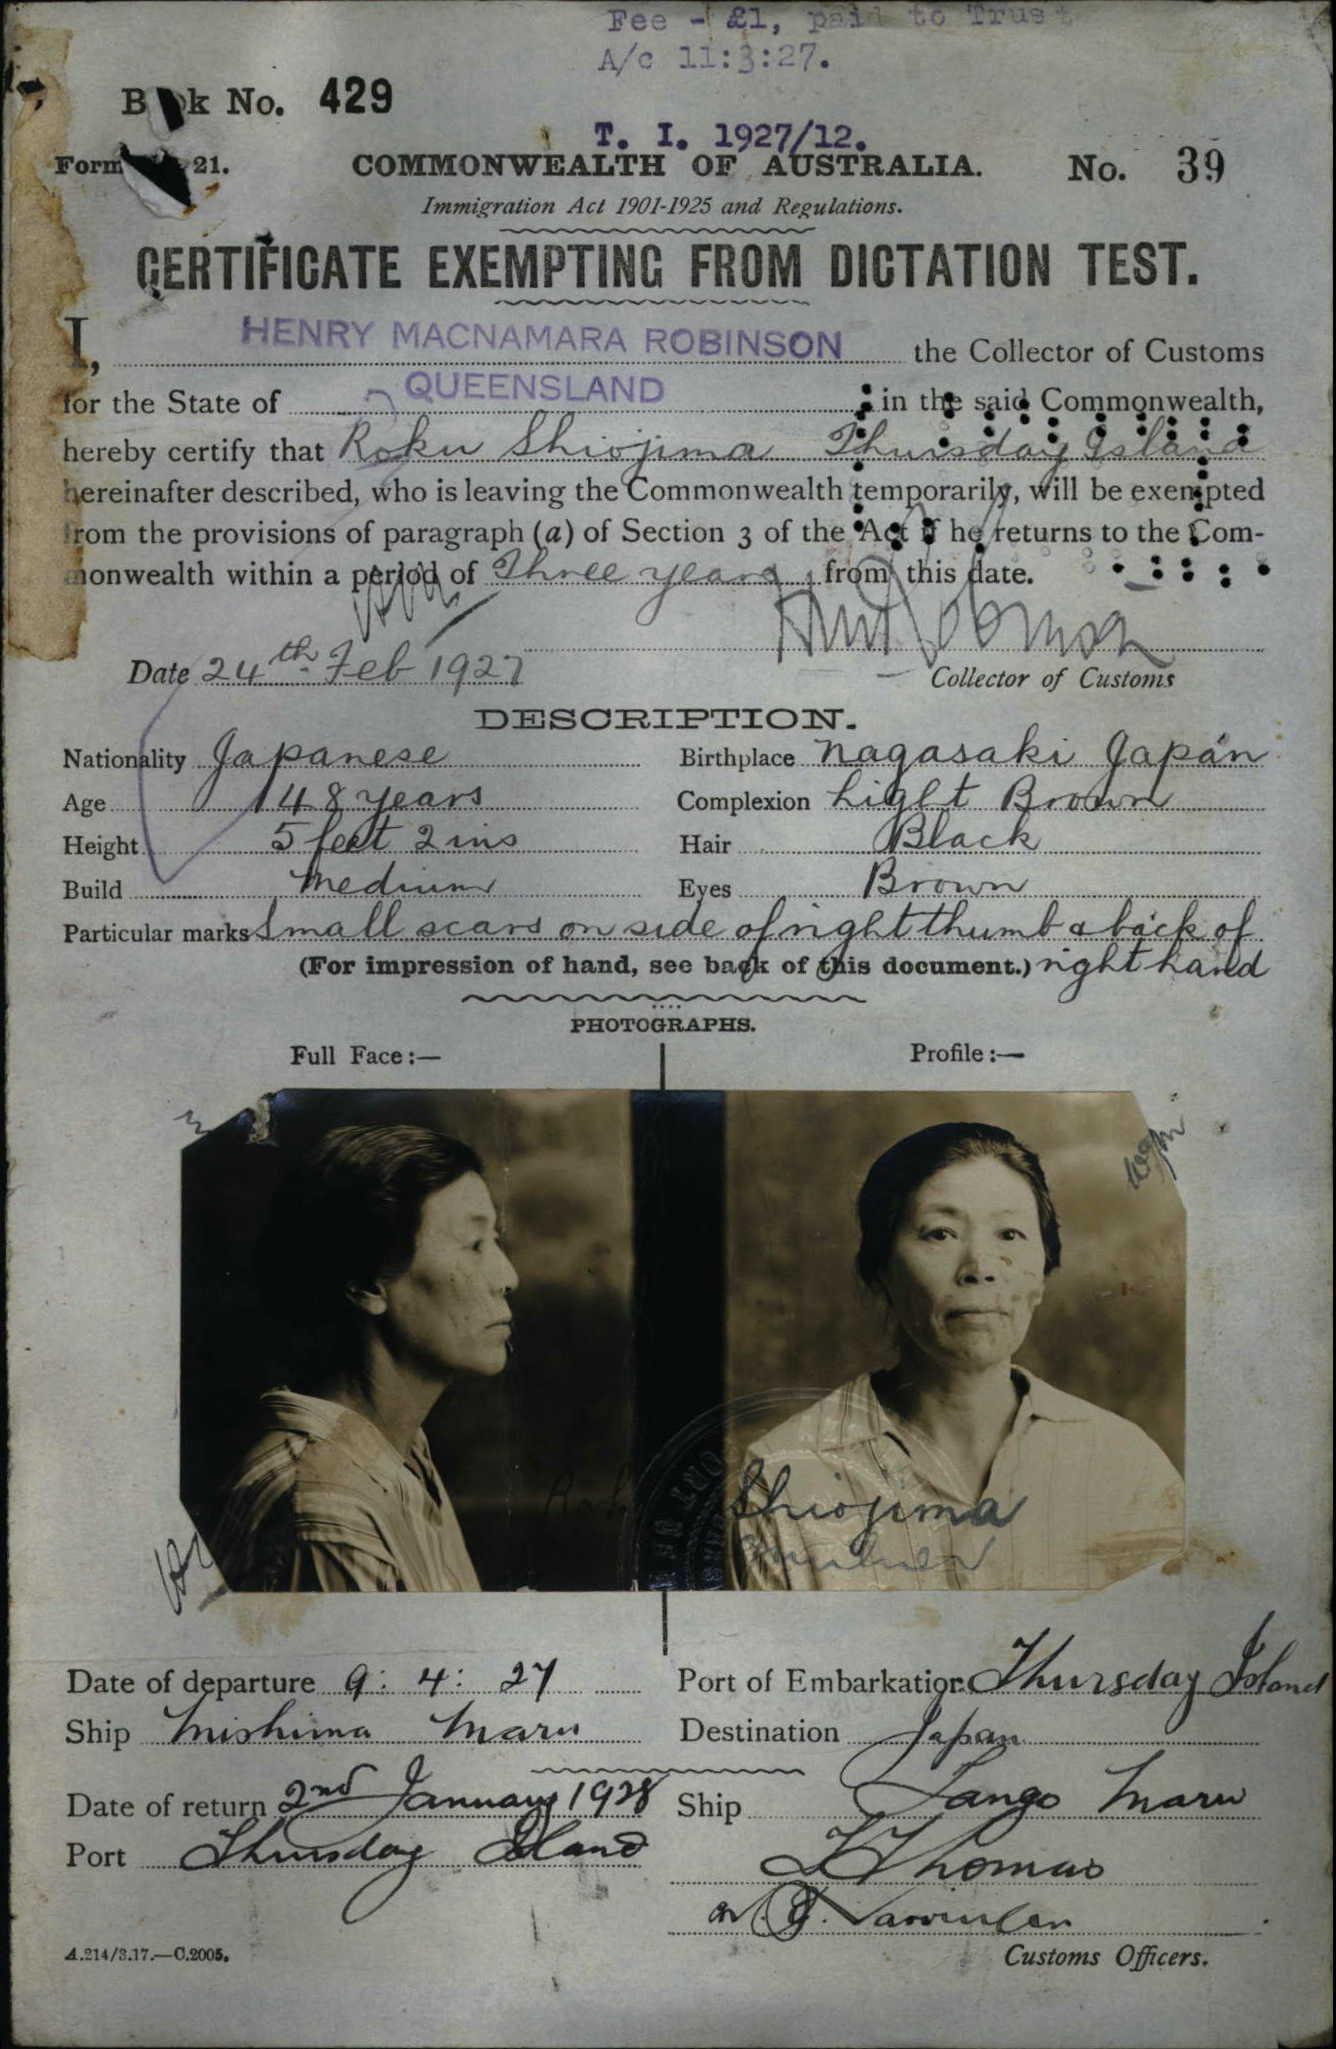 Fee - £1, paid to Trust
A/c 11:3:27.
Book No. 429
T. I. 1927/12.
Form 21.
COMMONWEALTH OF AUSTRALIA.
No. 39
Immigration Act 1901-1925 and Regulations.
CERTIFICATE EXEMPTING FROM DICTATION TEST.
I, HENRY MACNAMARA ROBINSON the Collector of Customs
for the State of QUEENSLAND in the said Commonwealth,
hereby certify that Roku Shiojima Thursday Island
hereinafter described, who is leaving the Commonwealth temporarily, will be exempted
from the provisions of paragraph (a) of Section 3 of the Act if he returns to the Com-
monwealth within a period of Three years from this date.
Date 24th Feb 1927
Collector of Customs
DESCRIPTION.
Nationality Japanese Birthplace Nagasaki Japan
Age 48 years Complexion Light Brown
Height 5 feet 2 ins Hair Black
Build Medium Eyes Brown
Particular marks Small scars on side of right thumb & back of
(For impression of hand, see back of this document.) right hand
PHOTOGRAPHS.
Full Face:— Profile:—
Shiojima
Date of departure 9: 4: 27 Port of Embarkation Thursday Island
Ship Mishima Maru Destination Japan
Date of return 2nd January 1928 Ship Tango Maru
Port Thursday Island
Thomas
Customs Officers.
A.214/3.17.—C.2005.